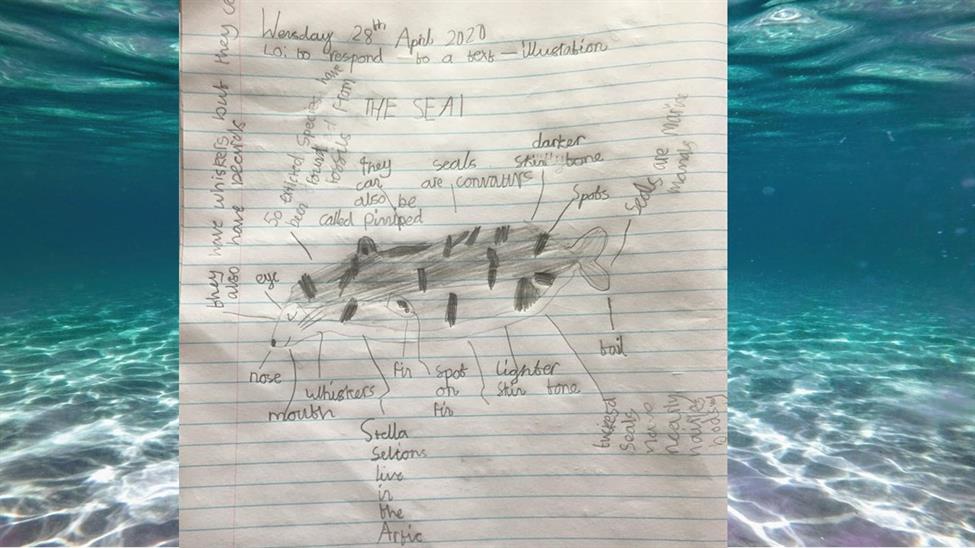 Wensday 28th April 2020
Lo: to respond to a text - illustation
THE SEAl
they have whiskers but they ca
also have
50 extictid species have
been found from
fossils
they
can
also be
called pinniped
seals
are
darker
skin tone
Spots
Seals are marine
mamals
eye
nose
mouth
whiskers
fin
spot
on
fin
lighter
skin tone
tail
seals
have
neatily
Stella
Seltions
live
in
the
Artic